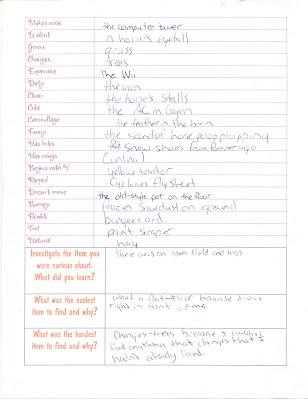 Makes noise the computer tower
Is silent a horse's eyeball
Grows grass
Changes trees
Expensive The Wii
Dirty the van
Clean the horse's stalls
Cold the AC in Gym
Camouflage the feather in the barn
Funny the sound of horse poop plopping
Has holes snow shoes from forever ago
Has wings Cardinal
Begins with Y yellow tractor
Ripped Cyclones fly sheet
Doesn't move the old-style pot on the floor
Bumpy frozen sawdust on ground
Flexible bungee cord
Tool paint scraper
Natural hay
Investigate the item you
were curious about.
What did you learn?
There was an open field and
What was the easiest
item to find and why?
what is flat-floor because it was
right in front of me
What was the hardest
item to find and why?
Changes-trees because I couldn't
find anything that changes that I
hadn't already found.